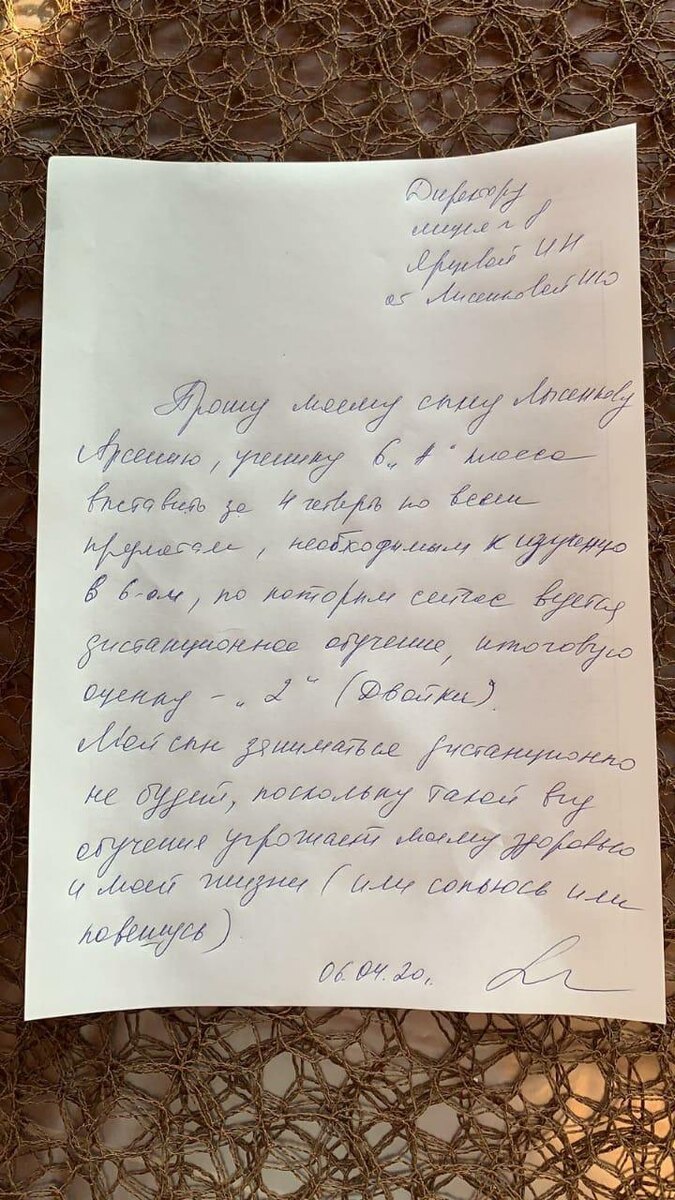 Директору
лицея № 8
Яруевой ИН
от Лысенковой ИЮ
Прошу моему сыну Лысенкову
Арсению, ученику 6 „А" класса
выставить за 4 четверть по всем
предметам, необходимым к изучению
в 6-ом, по которым сейчас ведется
дистанционное обучение, итоговую
оценку – „2" (Двойки).
Мой сын заниматься дистанционно
не будет, поскольку такой вид
обучения угрожает моему здоровью
и моей жизни (или сопьюсь или
повешусь)
06.04.20г.